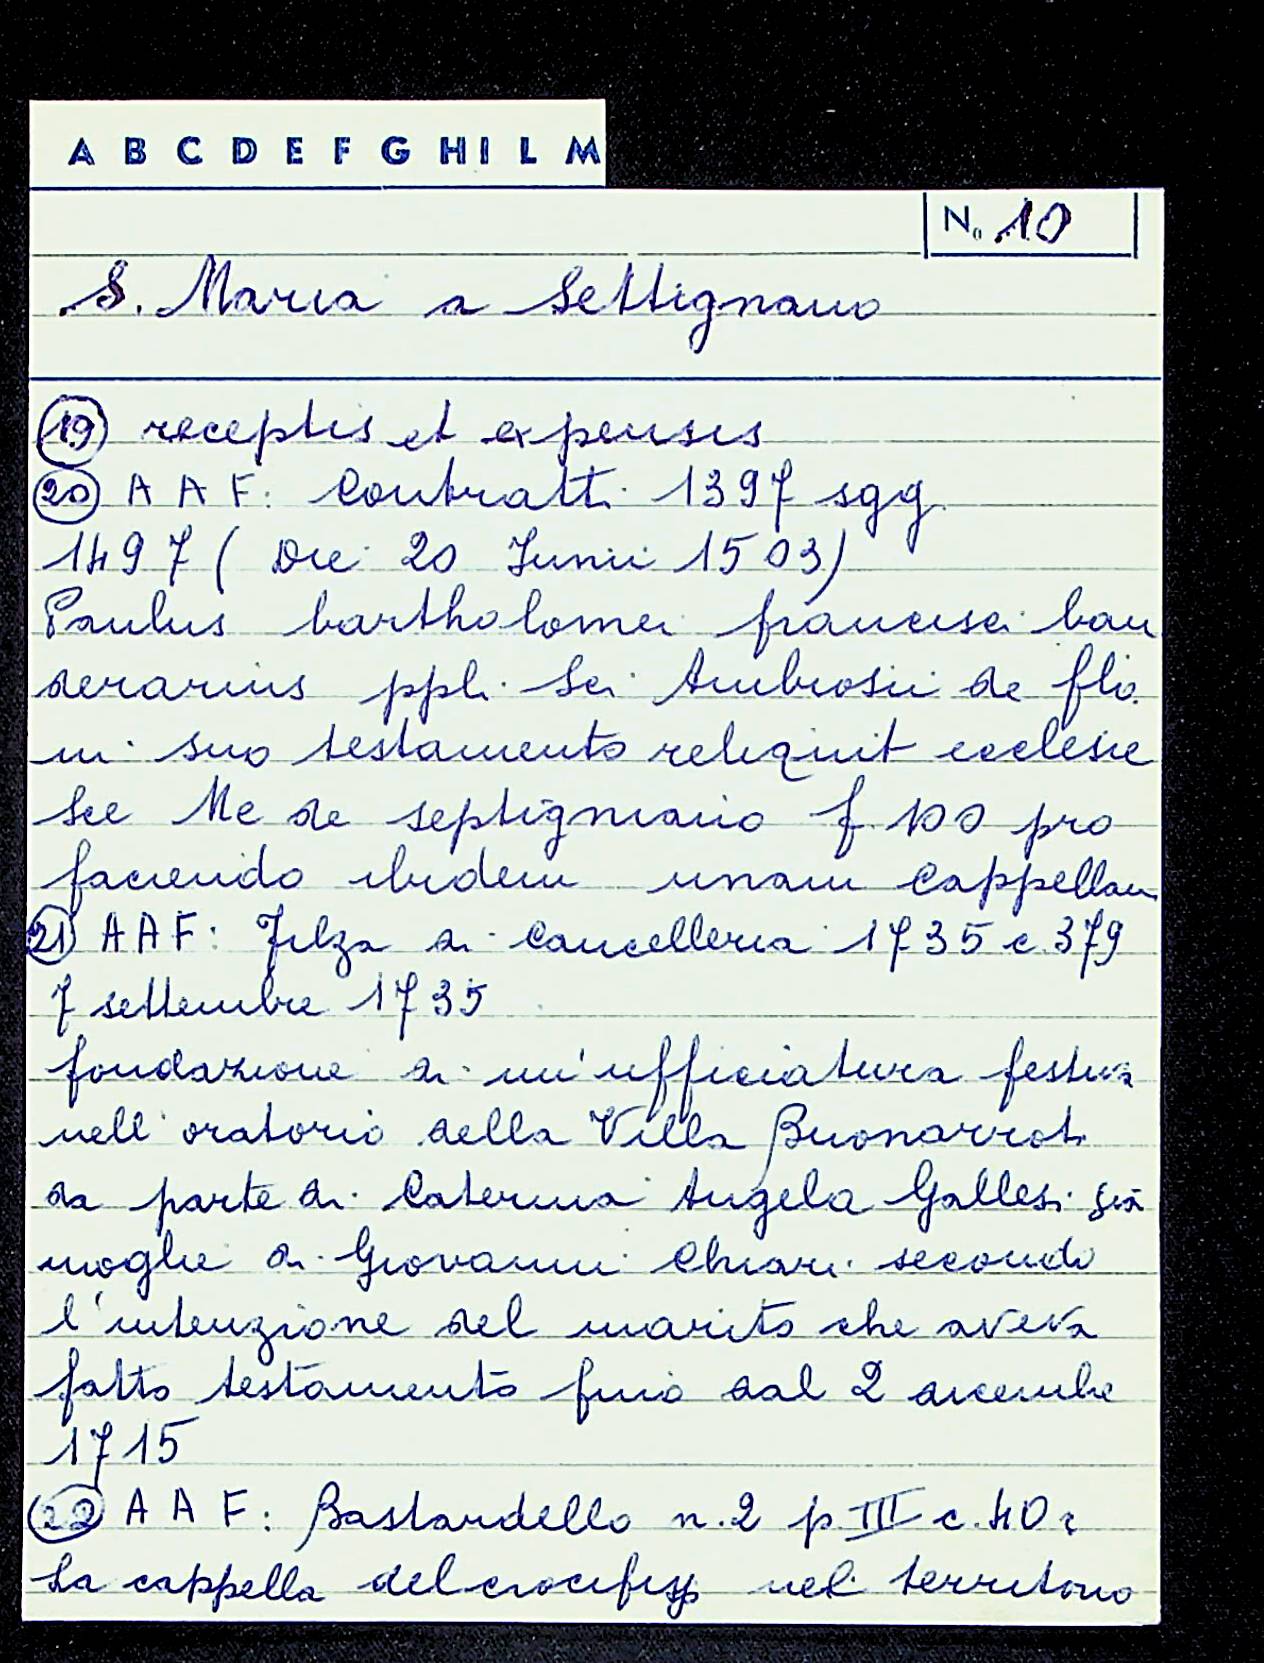 A B C D E F G H I L M
N. 10
S. Maria a Settignano
19 receptis et expensis
20 A A F: Contratti 1397 sgg.
1497 ( Die 20 Junii 1503)
Paulus bartholomei francisci ban
derarius ppli Sci Ambrosii de flo.
in suo testamento reliquit ecclesie
Sce Me de septigniano f. 100 pro
faciendo ibidem unam Cappellam
21 A A F: Filza di Cancelleria 1735 c. 379
7 settembre 1735
fondazione di un'ufficiatura festiva
nell'oratorio della Villa Buonarroti
da parte di Caterina Angela Gallesi già
moglie di Giovanni Chiari secondo
l'intenzione del marito che aveva
fatto testamento fino dal 2 dicembre
1715
22 A A F: Bastardello n. 2 p. III c. 40 r
La cappella del crocifisso nel territorio